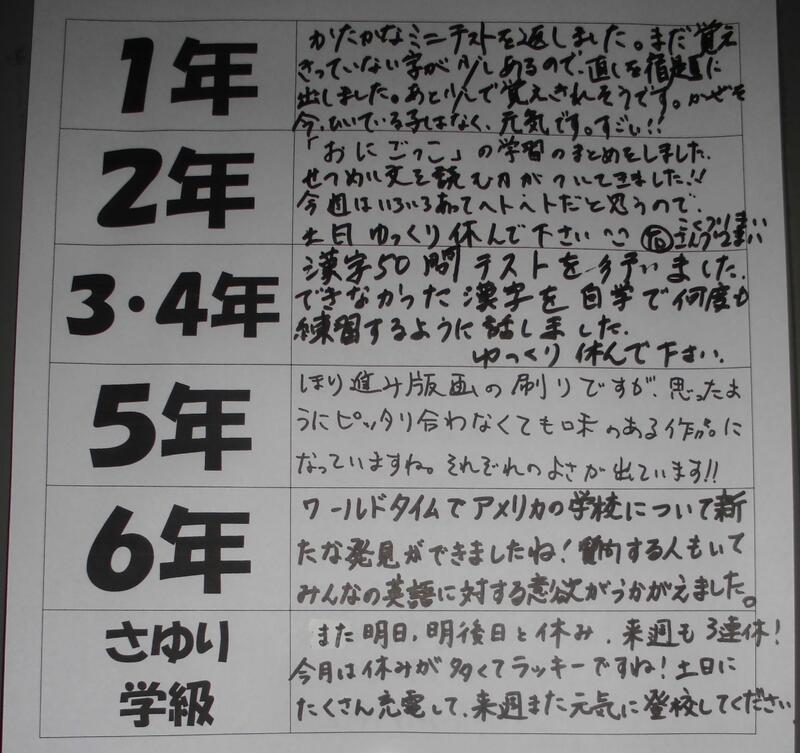 1年
かたかなミニテストを返しました。まだ覚え
きっていない字が少しあるので、直しを宿題に
出しました。あと少しで覚えきれそうです。かぜを
今、ひいている子はなく、元気です。すごい!!
2年
「おにごっこ」の学習のまとめをしました.
せつめい文を読む力がついてきました!!
今週はいろいろあってヘトヘトだと思うので、
土日 ゆっくり休んで下さい^^
こくぶりまい
さんぶつまい
3・4年
漢字50問テストを行いました.
できなかった漢字を自学で何度も
練習するように話しました.
ゆっくり休んで下さい.
5年
ほり進み版画の刷りですが、思ったよ
うにピッタリ合わなくても味のある作品に
なっていますね。それぞれのよさが出ています!!
6年
ワールドタイムでアメリカの学校について新
たな発見ができましたね!質問する人もいて
みんなの英語に対する意欲がうかがえました。
さゆり
学級
また明日、明後日と休み、来週も3連休!
今月は休みが多くてラッキーですね!土日に
たくさん充電して、来週また元気に登校してください